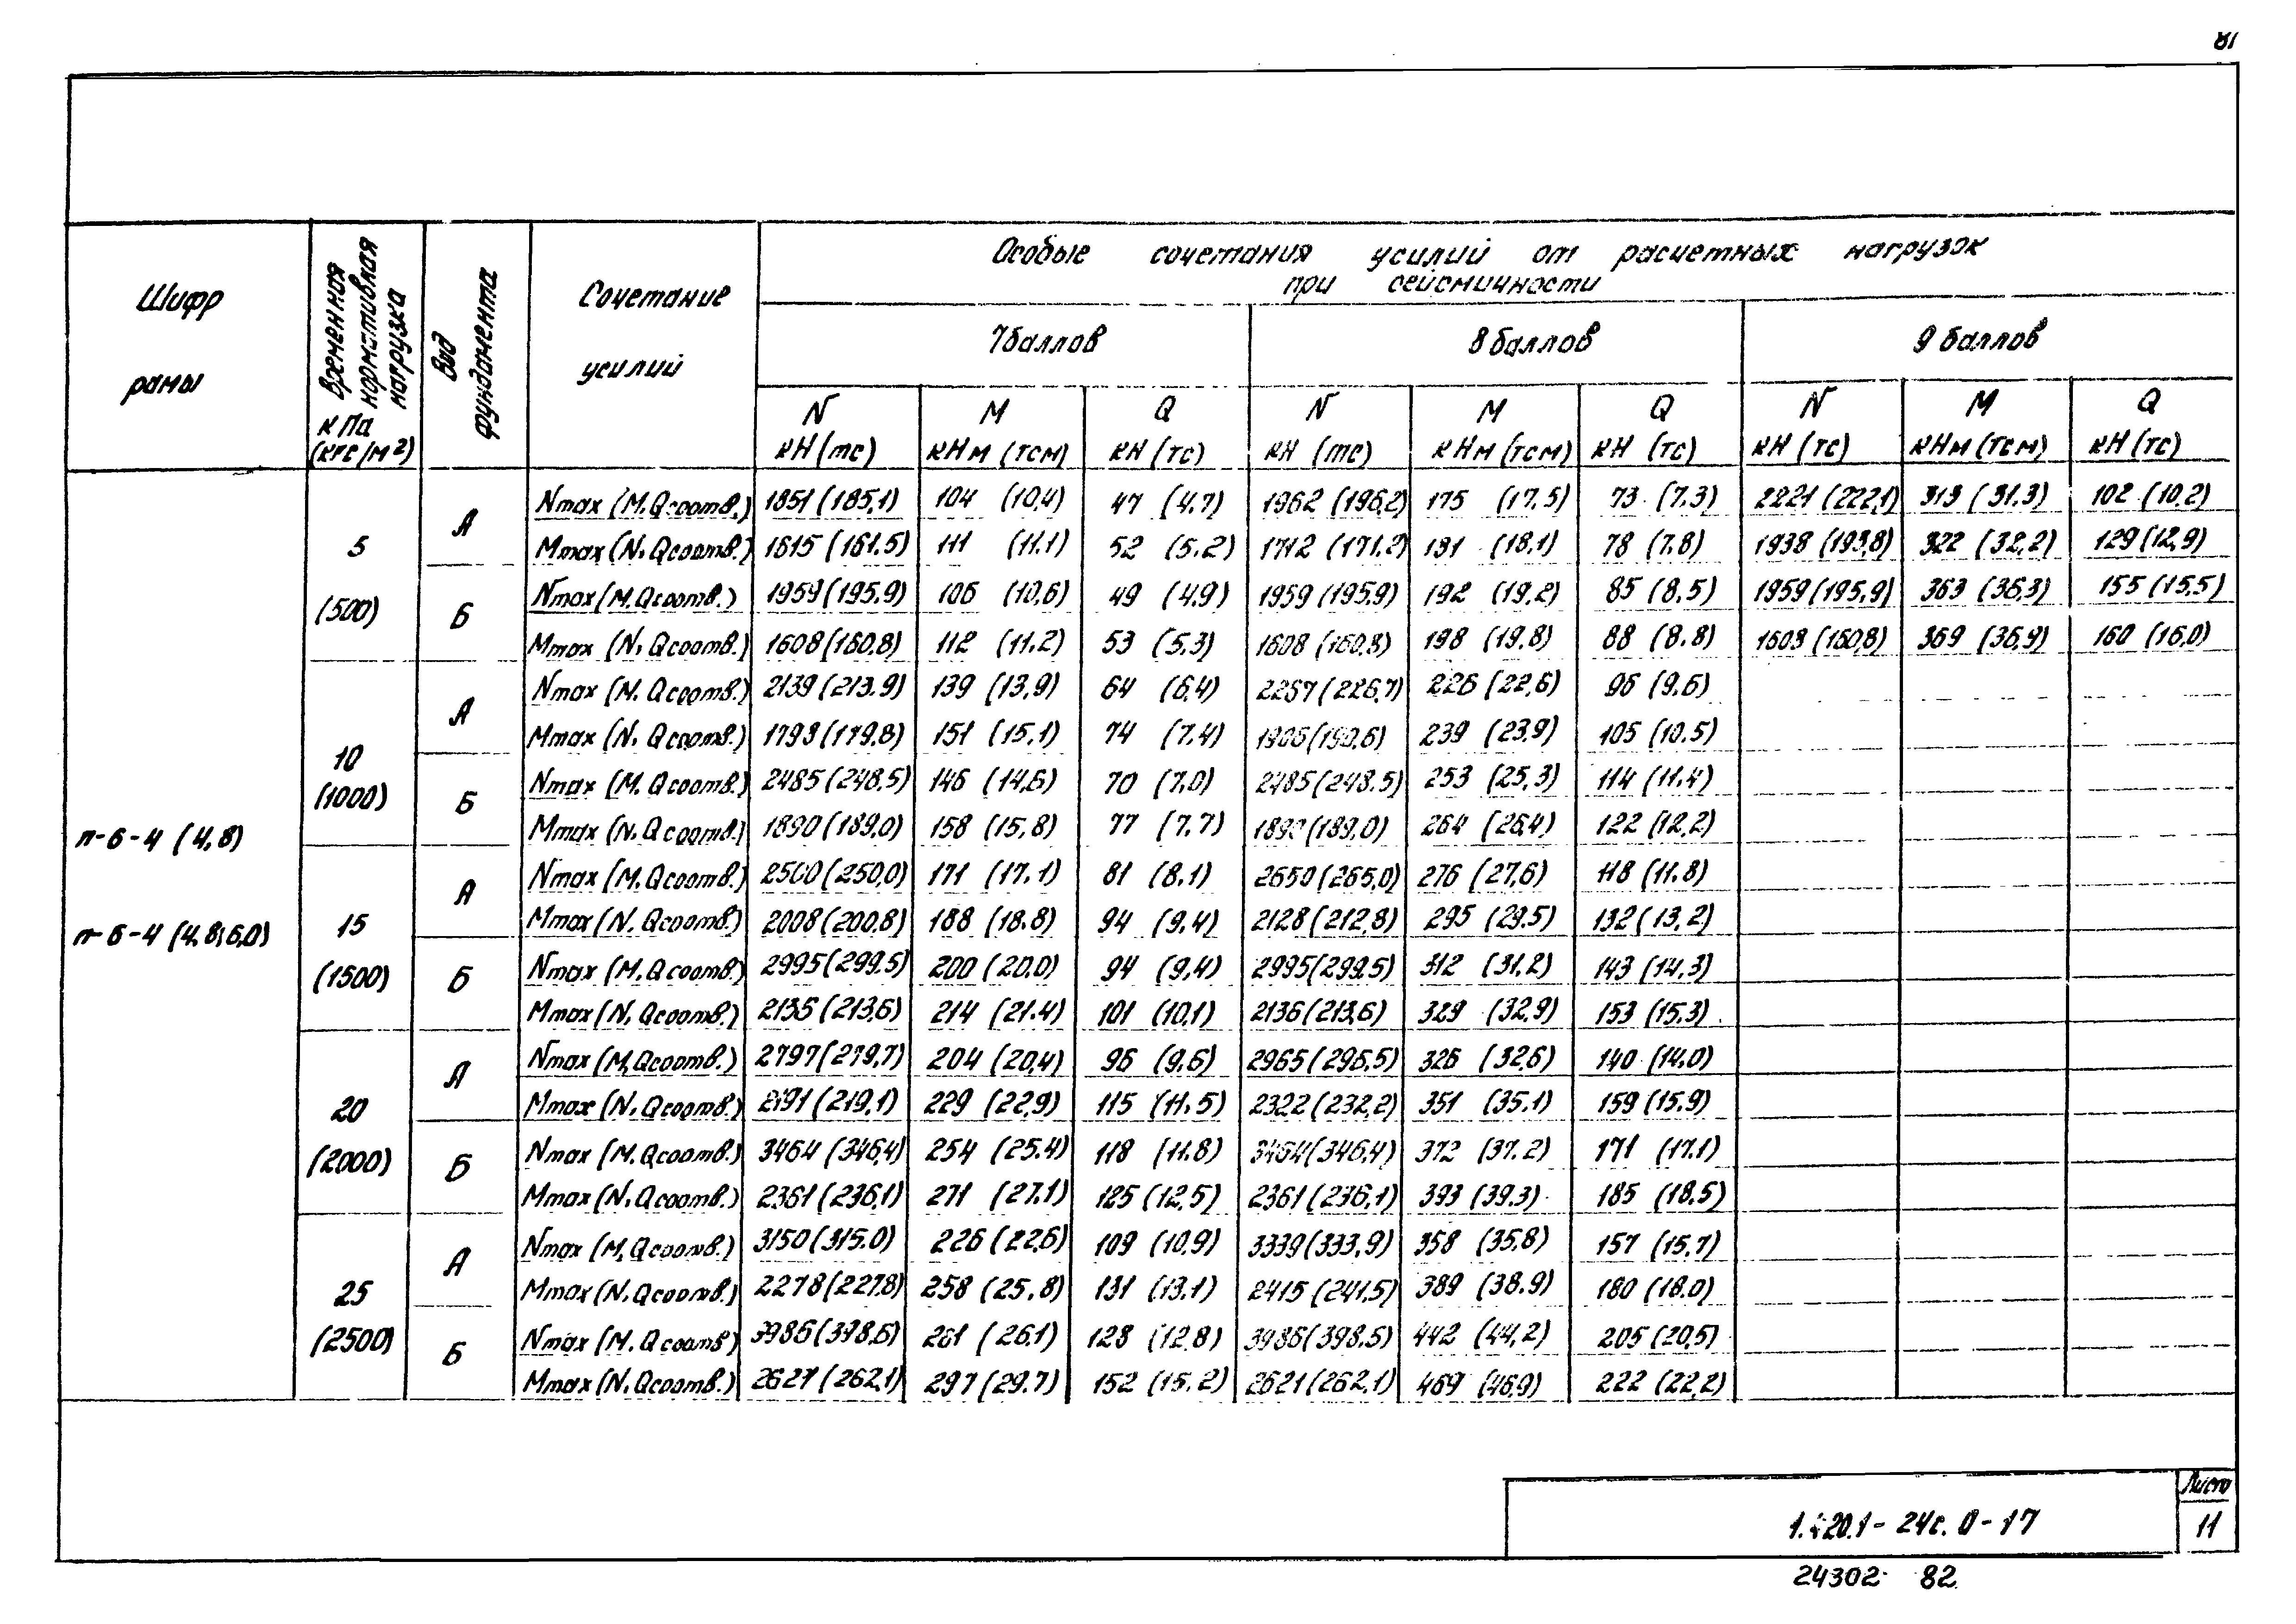 81
Шифр рамы
Временная нормативная нагрузка кПа (кгс/м²)
Вид фундамента
Сочетание усилий
Особые сочетания усилий от расчетных нагрузок
при сейсмичности
7 баллов 8 баллов 9 баллов
N кН (тс) M кНм (тсм) Q кН (тс) N кН (тс) M кНм (тсм) Q кН (тс) N кН (тс) M кНм (тсм) Q кН (тс)
п-6-4 (4,8)
п-6-4 (4,8;6,0)
5 (500)
А Nmax (M,Qсоотв.) 1851 (185,1) 104 (10,4) 47 (4,7) 1962 (196,2) 175 (17,5) 73 (7,3) 2221 (222,1) 313 (31,3) 102 (10,2)
Mmax (N,Qсоотв.) 1615 (161,5) 111 (11,1) 52 (5,2) 1712 (171,2) 181 (18,1) 78 (7,8) 1938 (193,8) 322 (32,2) 129 (12,9)
Б Nmax (M,Qсоотв.) 1959 (195,9) 106 (10,6) 49 (4,9) 1959 (195,9) 192 (19,2) 85 (8,5) 1959 (195,9) 363 (36,3) 155 (15,5)
Mmax (N,Qсоотв.) 1608 (160,8) 112 (11,2) 53 (5,3) 1608 (160,8) 198 (19,8) 88 (8,8) 1608 (160,8) 369 (36,9) 160 (16,0)
10 (1000)
А Nmax (M,Qсоотв.) 2139 (213,9) 139 (13,9) 64 (6,4) 2267 (226,7) 226 (22,6) 96 (9,6)
Mmax (N,Qсоотв.) 1798 (179,8) 151 (15,1) 74 (7,4) 1906 (190,6) 239 (23,9) 105 (10,5)
Б Nmax (M,Qсоотв.) 2485 (248,5) 146 (14,6) 70 (7,0) 2485 (248,5) 253 (25,3) 114 (11,4)
Mmax (N,Qсоотв.) 1890 (189,0) 158 (15,8) 77 (7,7) 1890 (189,0) 264 (26,4) 122 (12,2)
15 (1500)
А Nmax (M,Qсоотв.) 2500 (250,0) 171 (17,1) 81 (8,1) 2650 (265,0) 276 (27,6) 118 (11,8)
Mmax (N,Qсоотв.) 2008 (200,8) 188 (18,8) 94 (9,4) 2128 (212,8) 295 (29,5) 132 (13,2)
Б Nmax (M,Qсоотв.) 2995 (299,5) 200 (20,0) 94 (9,4) 2995 (299,5) 312 (31,2) 143 (14,3)
Mmax (N,Qсоотв.) 2136 (213,6) 214 (21,4) 101 (10,1) 2136 (213,6) 329 (32,9) 153 (15,3)
20 (2000)
А Nmax (M,Qсоотв.) 2797 (279,7) 204 (20,4) 96 (9,6) 2965 (296,5) 326 (32,6) 140 (14,0)
Mmax (N,Qсоотв.) 2191 (219,1) 229 (22,9) 115 (11,5) 2322 (232,2) 351 (35,1) 159 (15,9)
Б Nmax (M,Qсоотв.) 3464 (346,4) 254 (25,4) 118 (11,8) 3464 (346,4) 372 (37,2) 171 (17,1)
Mmax (N,Qсоотв.) 2361 (236,1) 271 (27,1) 125 (12,5) 2361 (236,1) 393 (39,3) 185 (18,5)
25 (2500)
А Nmax (M,Qсоотв.) 3150 (315,0) 226 (22,6) 109 (10,9) 3339 (333,9) 358 (35,8) 157 (15,7)
Mmax (N,Qсоотв.) 2278 (227,8) 258 (25,8) 131 (13,1) 2415 (241,5) 389 (38,9) 180 (18,0)
Б Nmax (M,Qсоотв.) 3986 (398,6) 261 (26,1) 128 (12,8) 3986 (398,6) 442 (44,2) 205 (20,5)
Mmax (N,Qсоотв.) 2621 (262,1) 297 (29,7) 152 (15,2) 2621 (262,1) 469 (46,9) 222 (22,2)
1.420.1-24с.0-17
Лист
11
24302 82